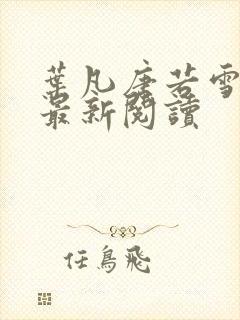 葉凡唐若雪
最新閱讀
任鳥飛